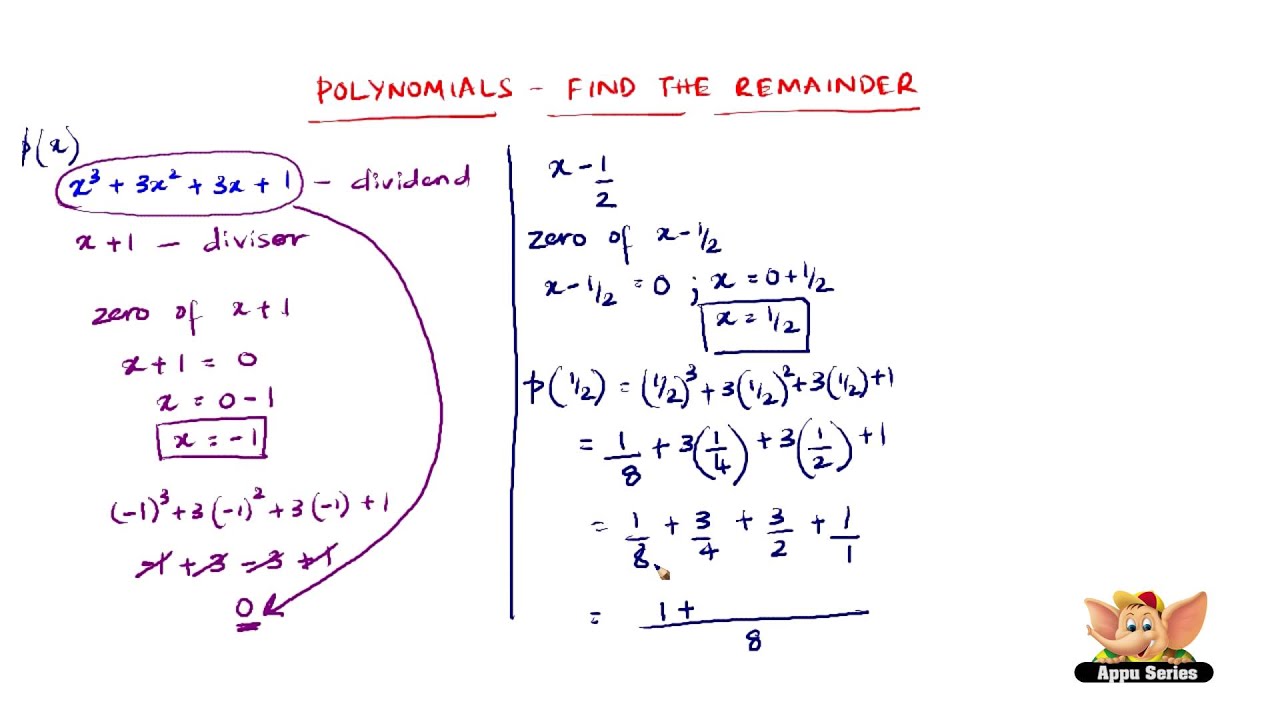 POLYNOMIALS - FIND THE REMAINDER
p(x)
x³ + 3x² + 3x + 1 - dividend
x + 1 - divisor
zero of x + 1
x + 1 = 0
x = 0 - 1
x = -1
(-1)³ + 3(-1)² + 3(-1) + 1
-1 + 3 - 3 + 1
0
x - 1/2
zero of x - 1/2
x - 1/2 = 0 ; x = 0 + 1/2
x = 1/2
p(1/2) = (1/2)³ + 3(1/2)² + 3(1/2) + 1
= 1/8 + 3(1/4) + 3(1/2) + 1
= 1/8 + 3/4 + 3/2 + 1/1
= 1 + / 8
Appu Series